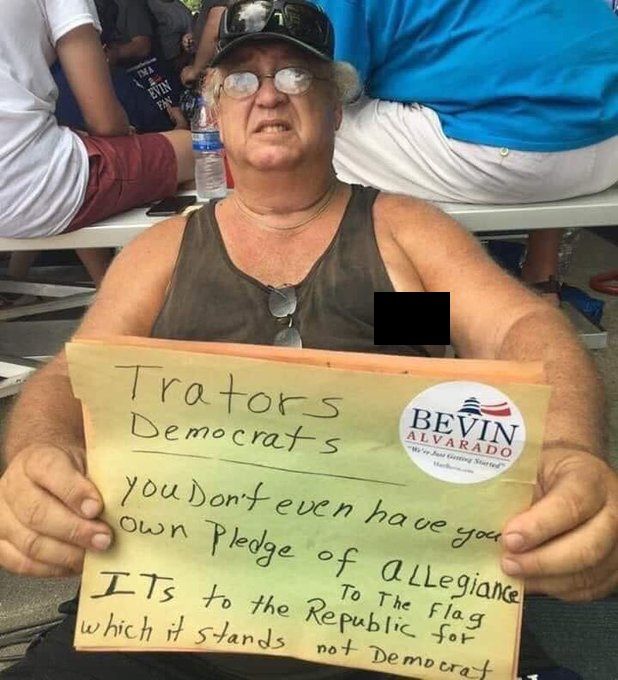 I'M A
BEVIN
FAN
Trators
Democrats
BEVIN
ALVARADO
"We're Just Getting Started"
you Don't even have your
own Pledge of aLLegiance
To The Flag
ITs to the Republic for
which it stands not Democrat